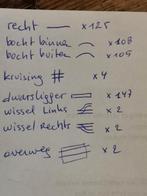 recht x 125
bocht binnen x 108
bocht buiten x 105
kruising x 4
dwarsligger x 147
wissel Links x 2
wissel Rechts x 2
overweg x 2